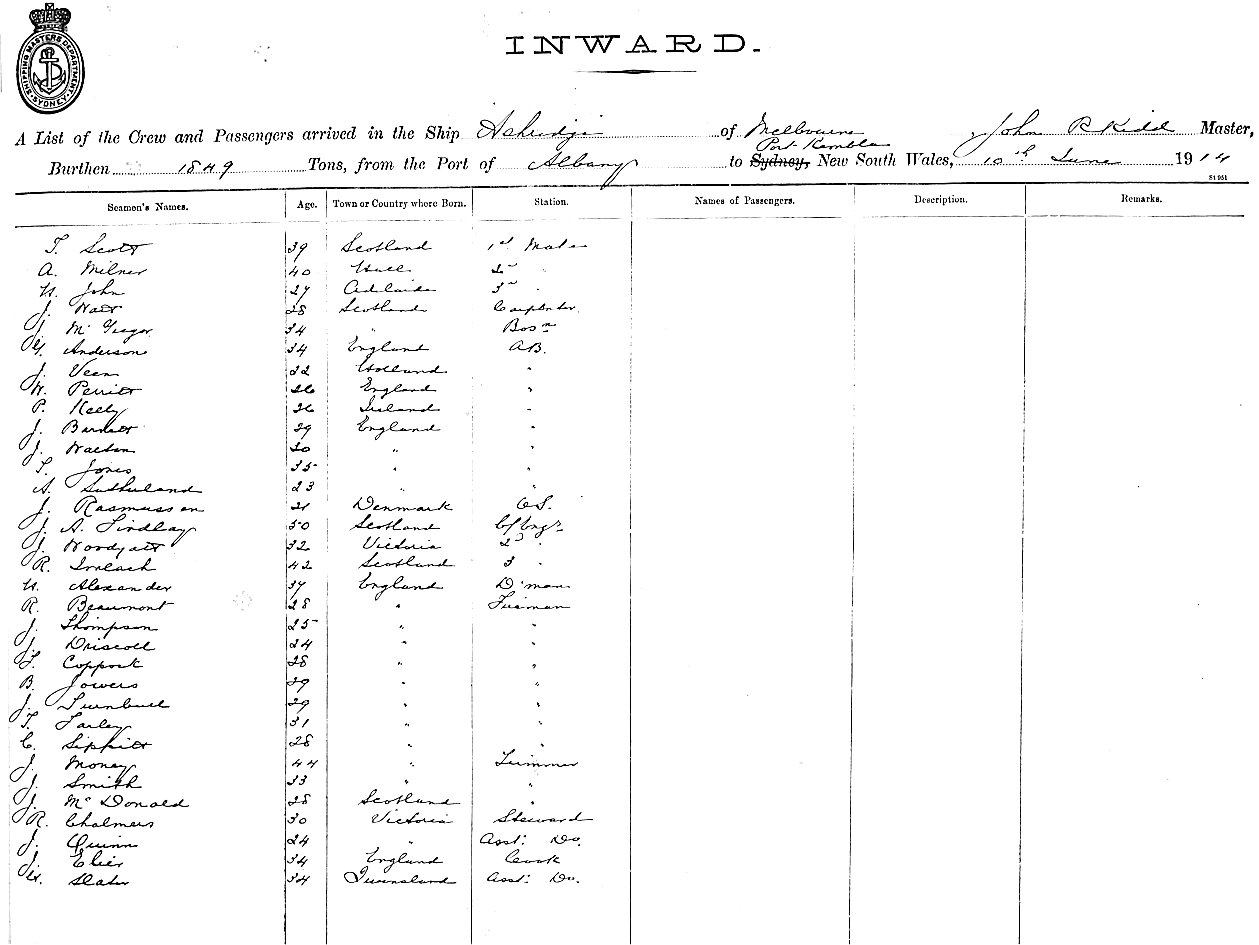 SHIPPING MASTERS DEPARTMENT SYDNEY
INWARD.
A List of the Crew and Passengers arrived in the Ship of Melbourne John R Kidd Master,
Port Kembla
Burthen 1849 Tons, from the Port of Albany to Sydney, New South Wales, 10th June 1914
S1951
Seamen's Names. Age. Town or Country where Born. Station. Names of Passengers. Description. Remarks.
T. Scott 39 Scotland 1st Mate
A. Milner 40 Hull 2nd "
H. John 27 Adelaide 3rd "
J. Watt 28 Scotland Carpenter
J. McGregor 34 " Bosn
G. Anderson 34 England AB.
J. Veen 32 Holland "
W. 26 England "
P. Kelly 26 Ireland "
J. 29 England "
J. Walton 30 " "
T. Jones 35 " "
A. Sutherland 23 " "
J. Rasmussen 21 Denmark O.S.
J. A. Findlay 50 Scotland C/Engr
J. Woodyatt 32 Victoria 2d "
R. Imlach 42 Scotland 3 "
H. Alexander 37 England D'man
R. Beaumont 28 " Fireman
J. Thompson 25 " "
J. Driscoll 24 " "
F. Coppock 28 " "
B. Jowers 29 " "
J. Turnbull 29 " "
T. Farley 31 " "
C. 28 " "
J. Money 44 " Trimmer
J. Smith 33 " "
J. McDonald 28 Scotland "
R. Chalmers 30 Victoria Steward
J. Quinn 24 " Asst: Do.
J. 34 England Cook
Slater 34 Queensland Asst: Do.